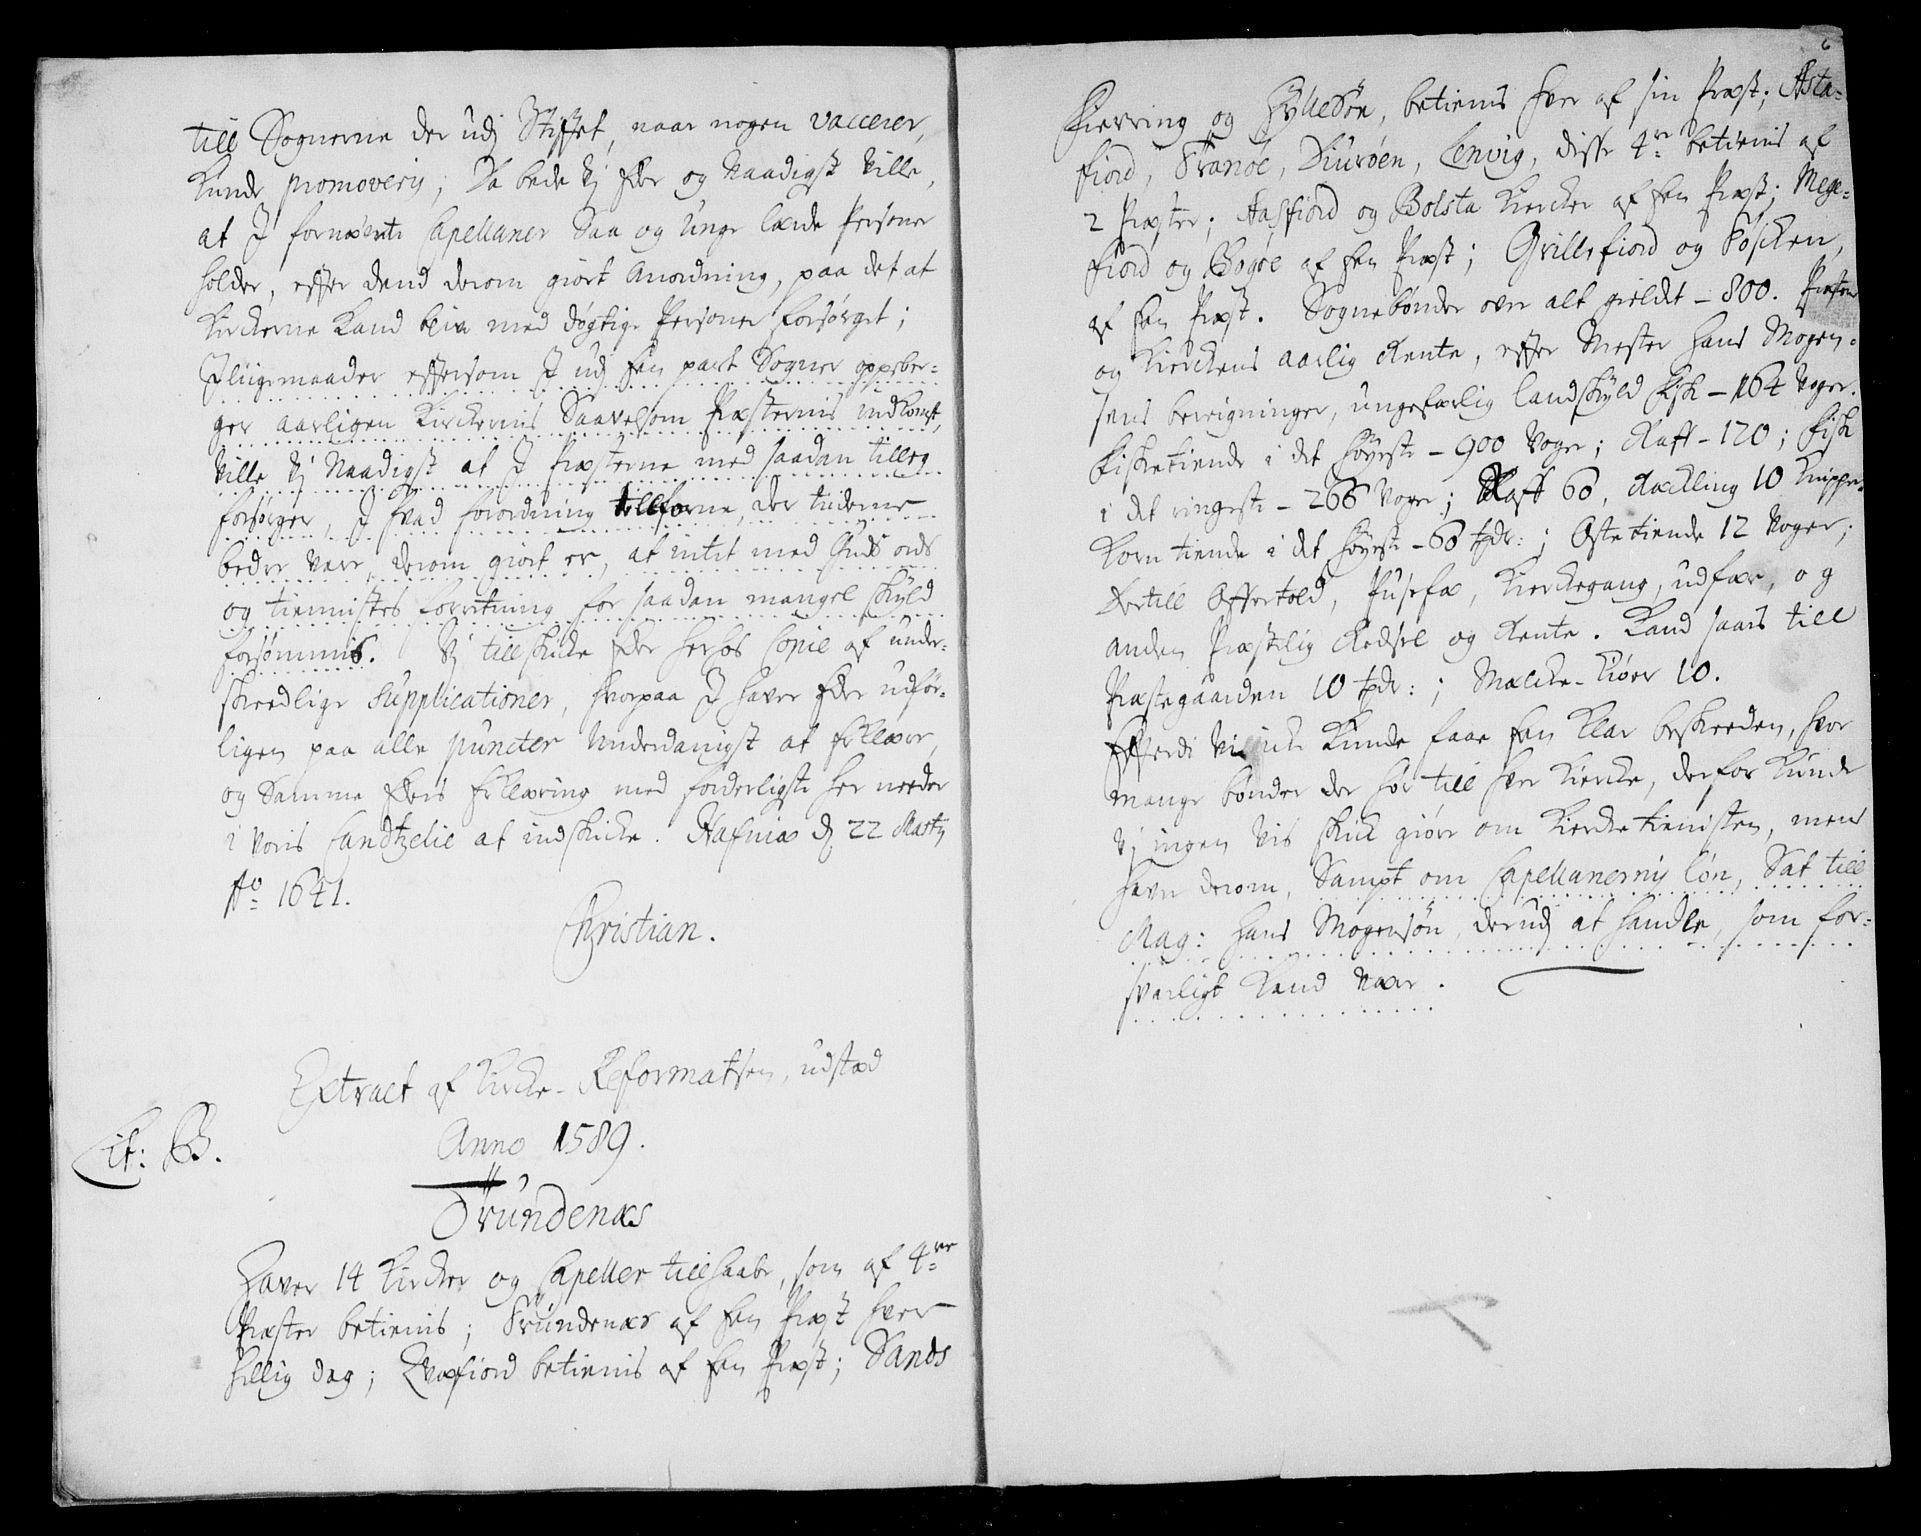 till Sognerne der udj Stifftet, naar nogen vaccerer,
kunde promoveris; Da bede Vj Eder og Naadigst Ville,
at I fornævnte Capellaner Saa og unge lærde Personer
holder, effter dend derom giort Anordning, paa det at
Kirckerne kand bliv med døgtige Personer forsørget;
I liigemaader effterSom I udj een part Sogner oppeber-
ger aarligen Kirckernis Saavelsom Præsternis indkomst,
Ville Vj Naadigst at I Præsterne med saadan tilleg
forsørger, I hvad forordning tillforne, der tiderne
bedre vare, derom giort er, at intet med Guds ords
og tiennistes forretning for saadan mangel skyld
forsømmis. Vj tillskicke Eder herhos Copie af under-
skeedlige Supplicationer, hvorpaa I haver Eder udfør-
ligen paa alle puncter Underdanigst at erklære,
og Samme Eders Erklæring med forderligste her needer
i Voris Candtzelie at indskicke. Hafniæ d. 22 Martij
Ao 1641.
Christian.
Extract af Kircke-Reformatsen, udstæd
Anno 1589.
Lit: B.
Trundenæs
Haver 14 Kircker og Capeller tillsaabe, som af 4re
Præster betienis; Trundenæs af een Præst hver
hellig dag; Qvæfiord betienis af een Præst; Sands
6
Kierring og Hyllesøn, betienis hver af sin Præst; Asta-
fiord, Tranøe, Diurøen, Lenvig, disse 4re betienis af
2 Præster; Aasfiord og Bolsta Kircker af een Præst; Mege-
fiord og Bogøe af een Præst; Grillefiord og Fosken,
af een Præst. Sognebønder over alt gieldet - 800. Præstens
og Kirckens aarlig Rente, effter Mester Hans Mogen-
sens beregninger, ungefærlig landskyld Fisk - 164 Voger.
Fisketiende i det høyeste - 900 Voger; Raff - 120; Fisk
i det ringeste - 266 Voger; Raff 60, Reckling 10 Knipper
Korn tiende i det høyeste - 60 tdr: ; Oste tiende 12 Voger;
Dertill Offertold, Pusefæ, Kirckegang, udfær, og
anden Præstelig Redsel og Rente. Kand saaes till
Præstegaarden 10 tdr: ; Malcke-Kiøer 10.
Efterdi Vi icke kunde faae een klar beskeeden, hvor
mange bønder der hør till hver Kircke, derfor kunde
Vj ingen vis skick giøre om Kircketienisten, men
haver derom, Sampt om Capellanernis løn, Sat till
Mag: Hans Mogensøn, derudj at handle, som for-
svarligt kand være.